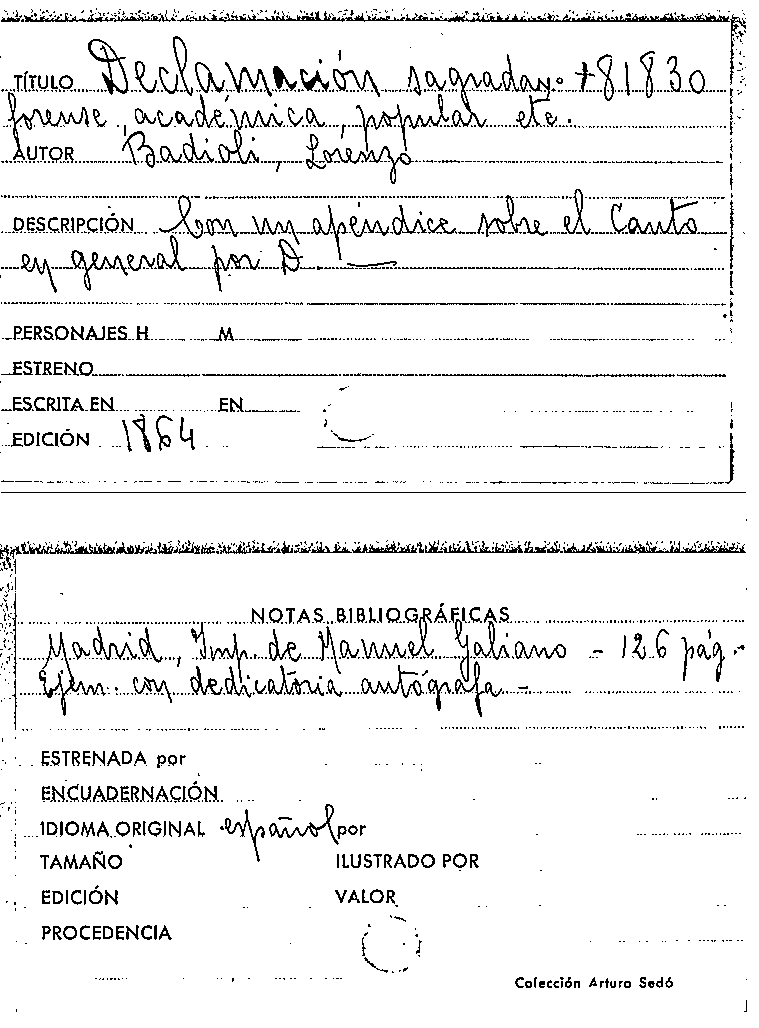 TÍTULO Declamación sagrada y +81830
forense, académica, popular etc.
AUTOR Badioli, Lorenzo
DESCRIPCIÓN Con un apéndice sobre el Canto
en general por D. —
PERSONAJES H M
ESTRENO
ESCRITA EN EN
EDICIÓN 1864
NOTAS BIBLIOGRÁFICAS
Madrid, Imp. de Manuel Galiano - 126 pág.-
Ejem. con dedicatoria autógrafa -
ESTRENADA por
ENCUADERNACIÓN
IDIOMA ORIGINAL español por
TAMAÑO ILUSTRADO POR
EDICIÓN VALOR
PROCEDENCIA
Colección Arturo Sedó